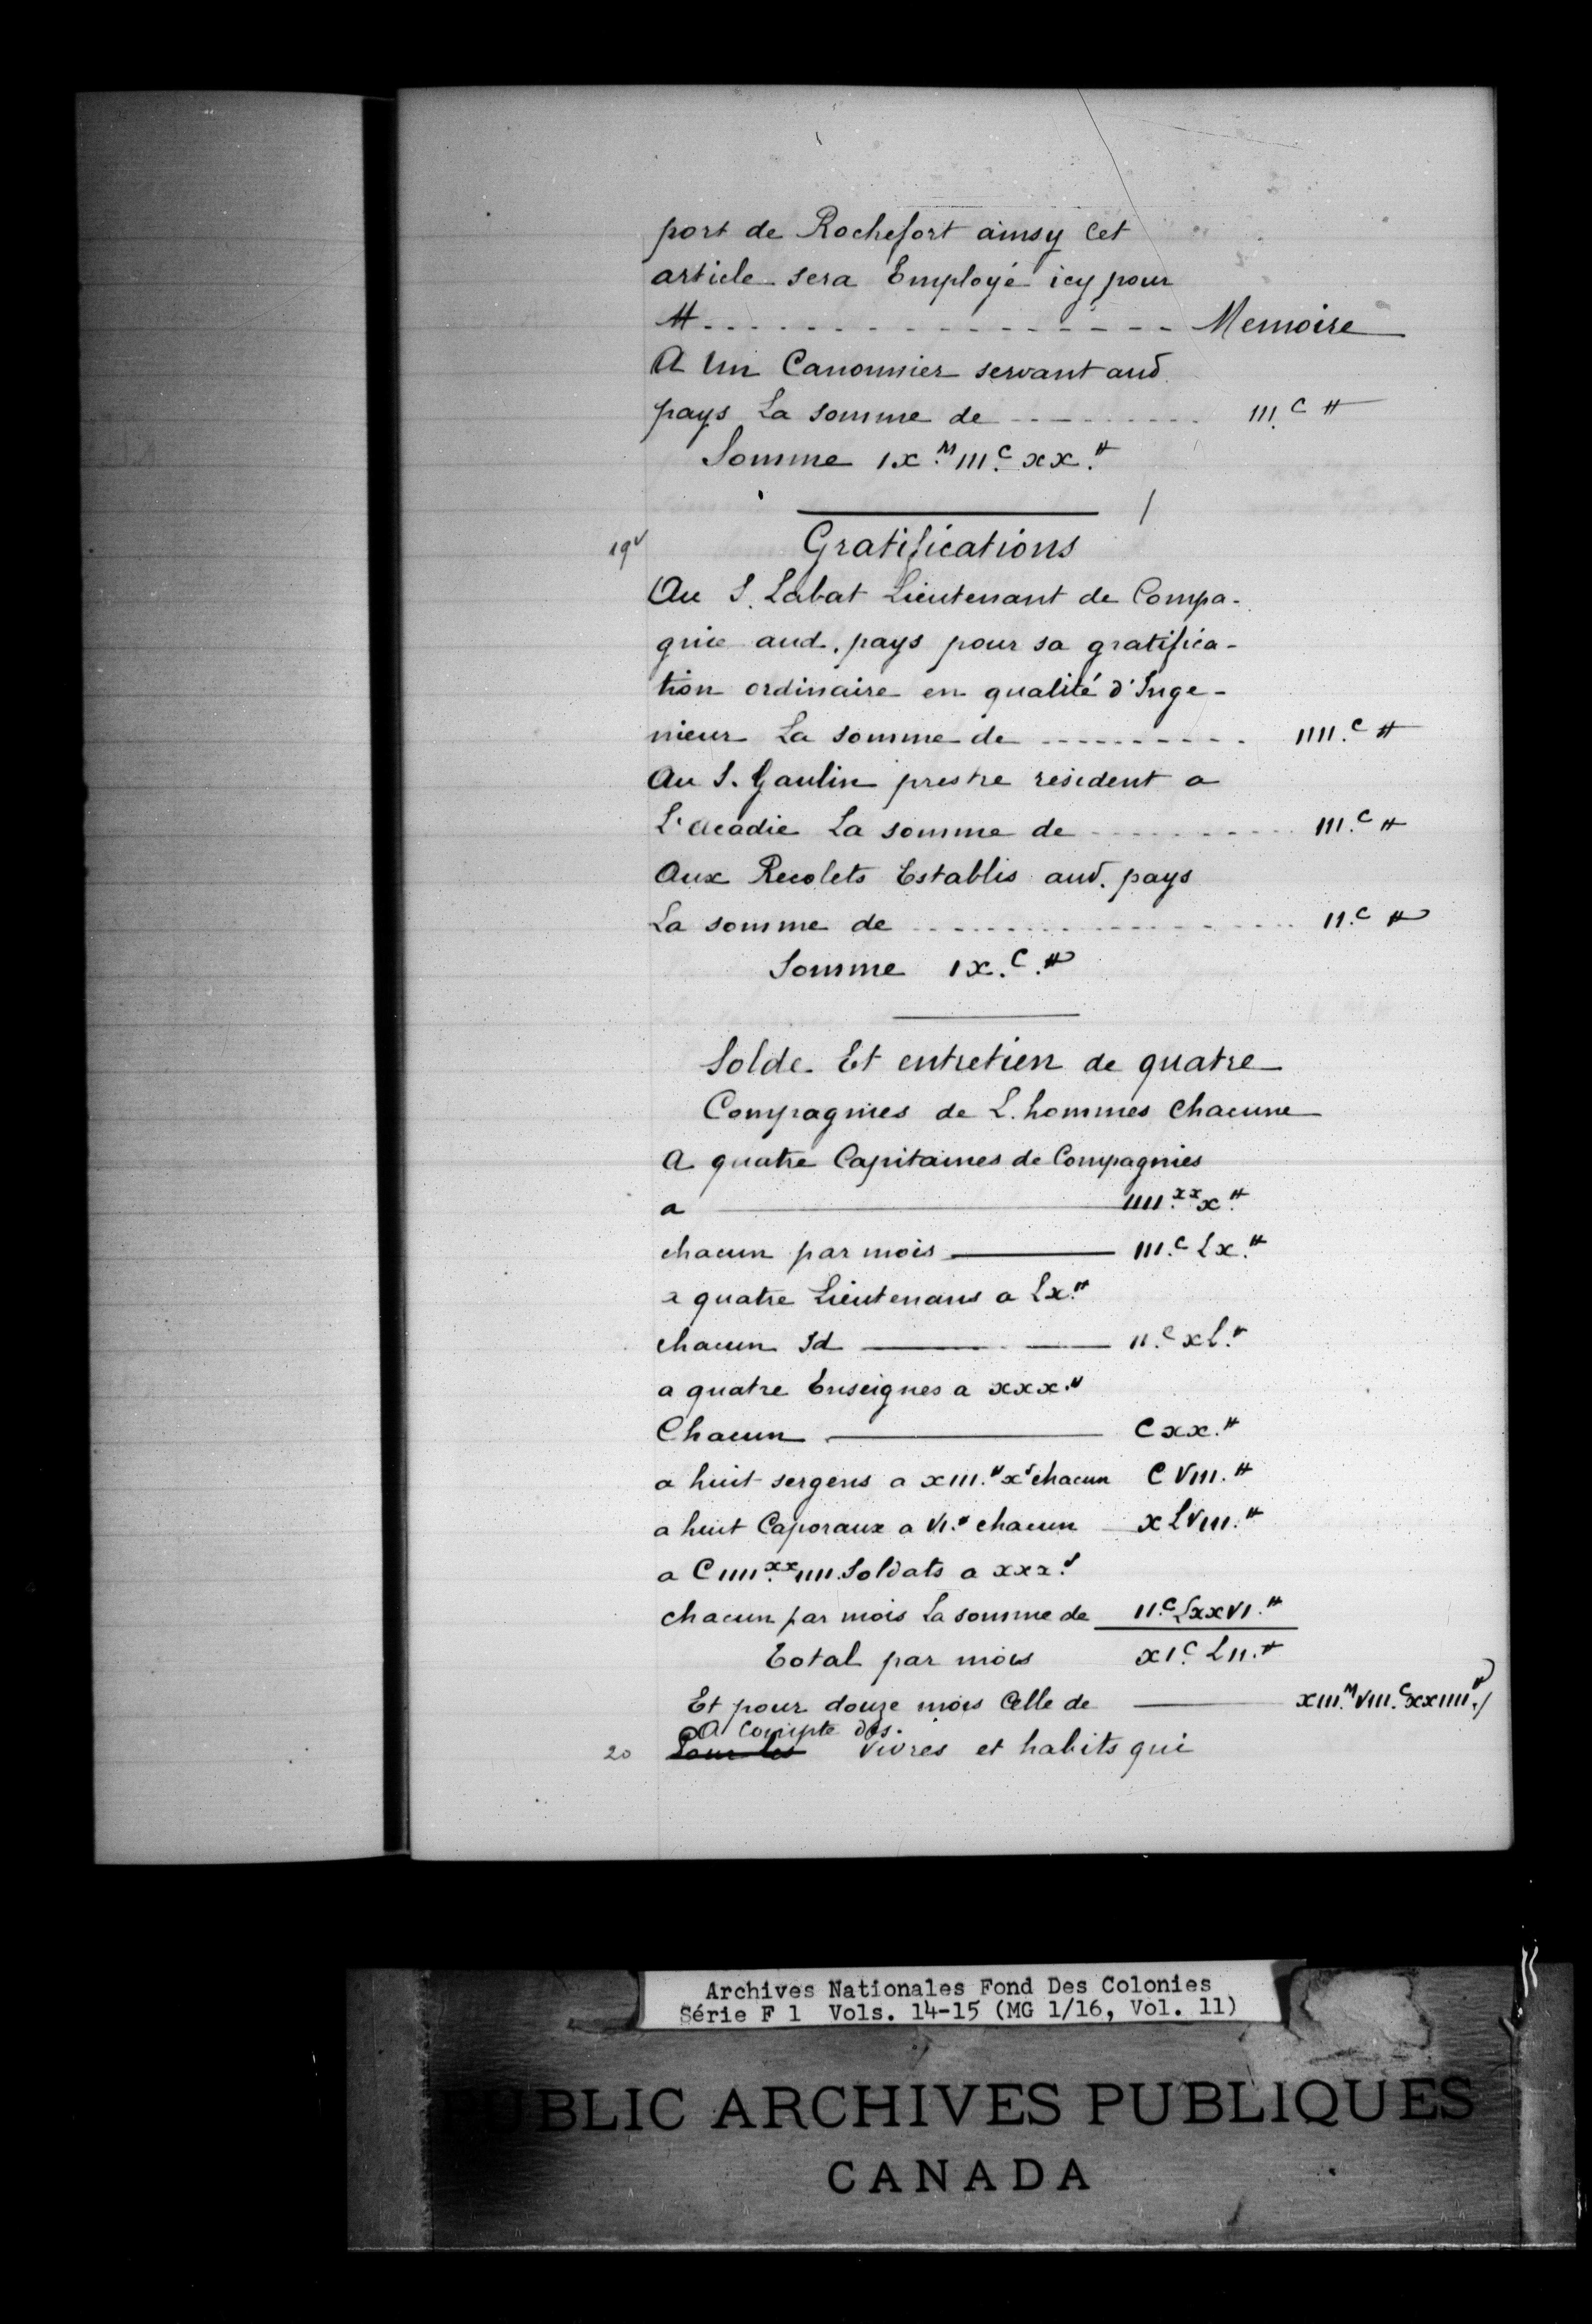 port de Rochefort ainsy Cet
article sera Employé icy pour
₶ - - - - - - - - - - - - - - - - - Memoire
A Un Canonnier servant aud.
pays La somme de - - - - - - - - - - III.C ₶
Somme IX.M III.C XX.₶
19v Gratifications
Au S. Labat Lieutenant de Compa-
gnie aud. pays pour sa gratifica-
tion ordinaire en qualité d'Inge-
nieur La somme de - - - - - - - - - IIII.C ₶
Au S. Gaulin prestre résident a
L'acadie La somme de - - - - - - - - - III.C ₶
Aux Recolets Establis aud. pays
La somme de - - - - - - - - - - - - - - - II.C ₶
Somme IX.C.₶
Solde Et entretien de quatre
Compagnies de L. hommes Chacune
A quatre Capitaines de Compagnies
a ——— IIII.xx x.₶
chacun par mois ——— III.C Lx.₶
a quatre Lieutenans a Lx.₶
chacun Id ——— II.C xL.₶
a quatre Enseignes a xxx.₶
Chacun ——— Cxx.₶
a huit sergens a xIII.₶ xs chacun CVIII.₶
a huit Caporaux a VI.₶ chacun xLVIII.₶
a CIIII.xx IIII. Soldats a xxx.s
chacun par mois La somme de II.C LxxVI.₶
Total par mois xI.C LII.₶
Et pour douze mois Celle de ——— xIII.M VIII.C xxIIII.₶
A Compte des.
20 Pour les Vivres et habits qui
Archives Nationales Fond Des Colonies
Série F 1 Vols. 14-15 (MG 1/16, Vol. 11)
PUBLIC ARCHIVES PUBLIQUES
CANADA